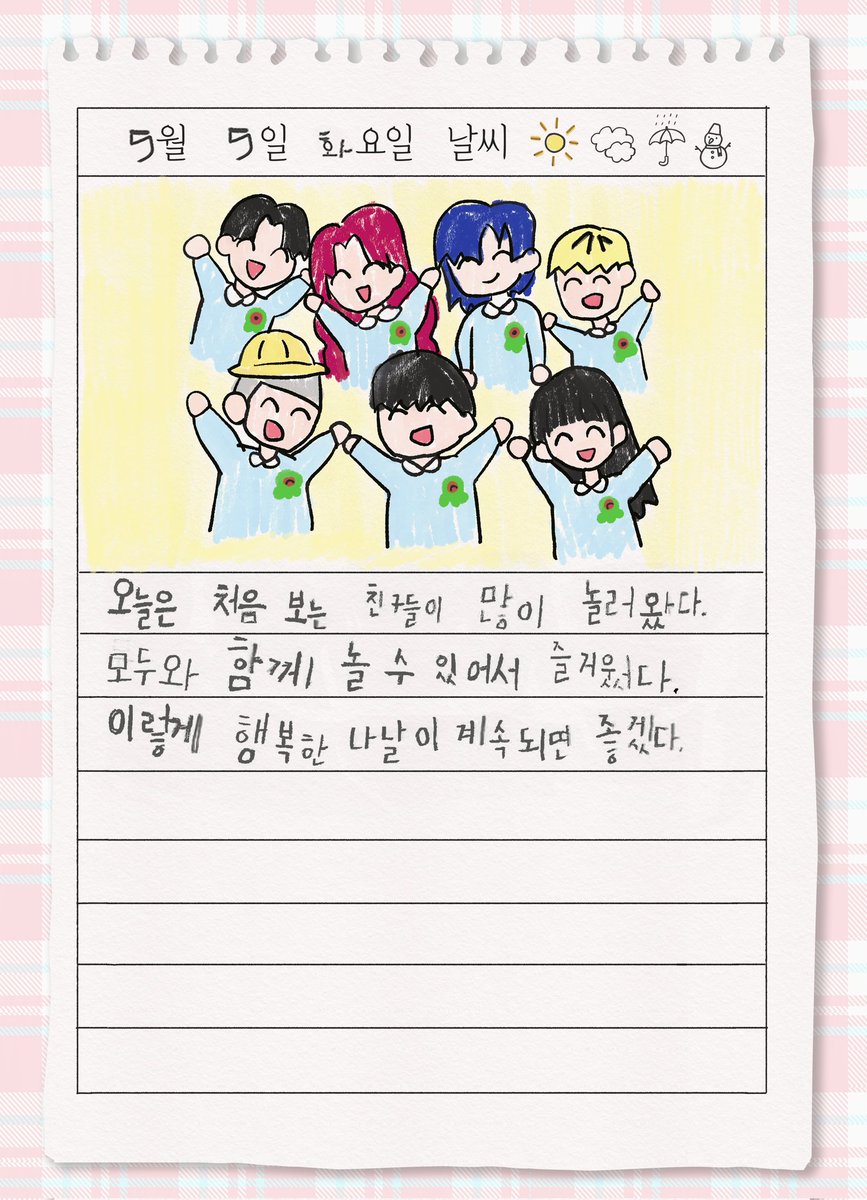 5월 5일 화요일 날씨
오늘은 처음 보는 친구들이 많이 놀러왔다.
모두와 함께 놀 수 있어서 즐거웠다.
이렇게 행복한 나날이 계속되면 좋겠다.